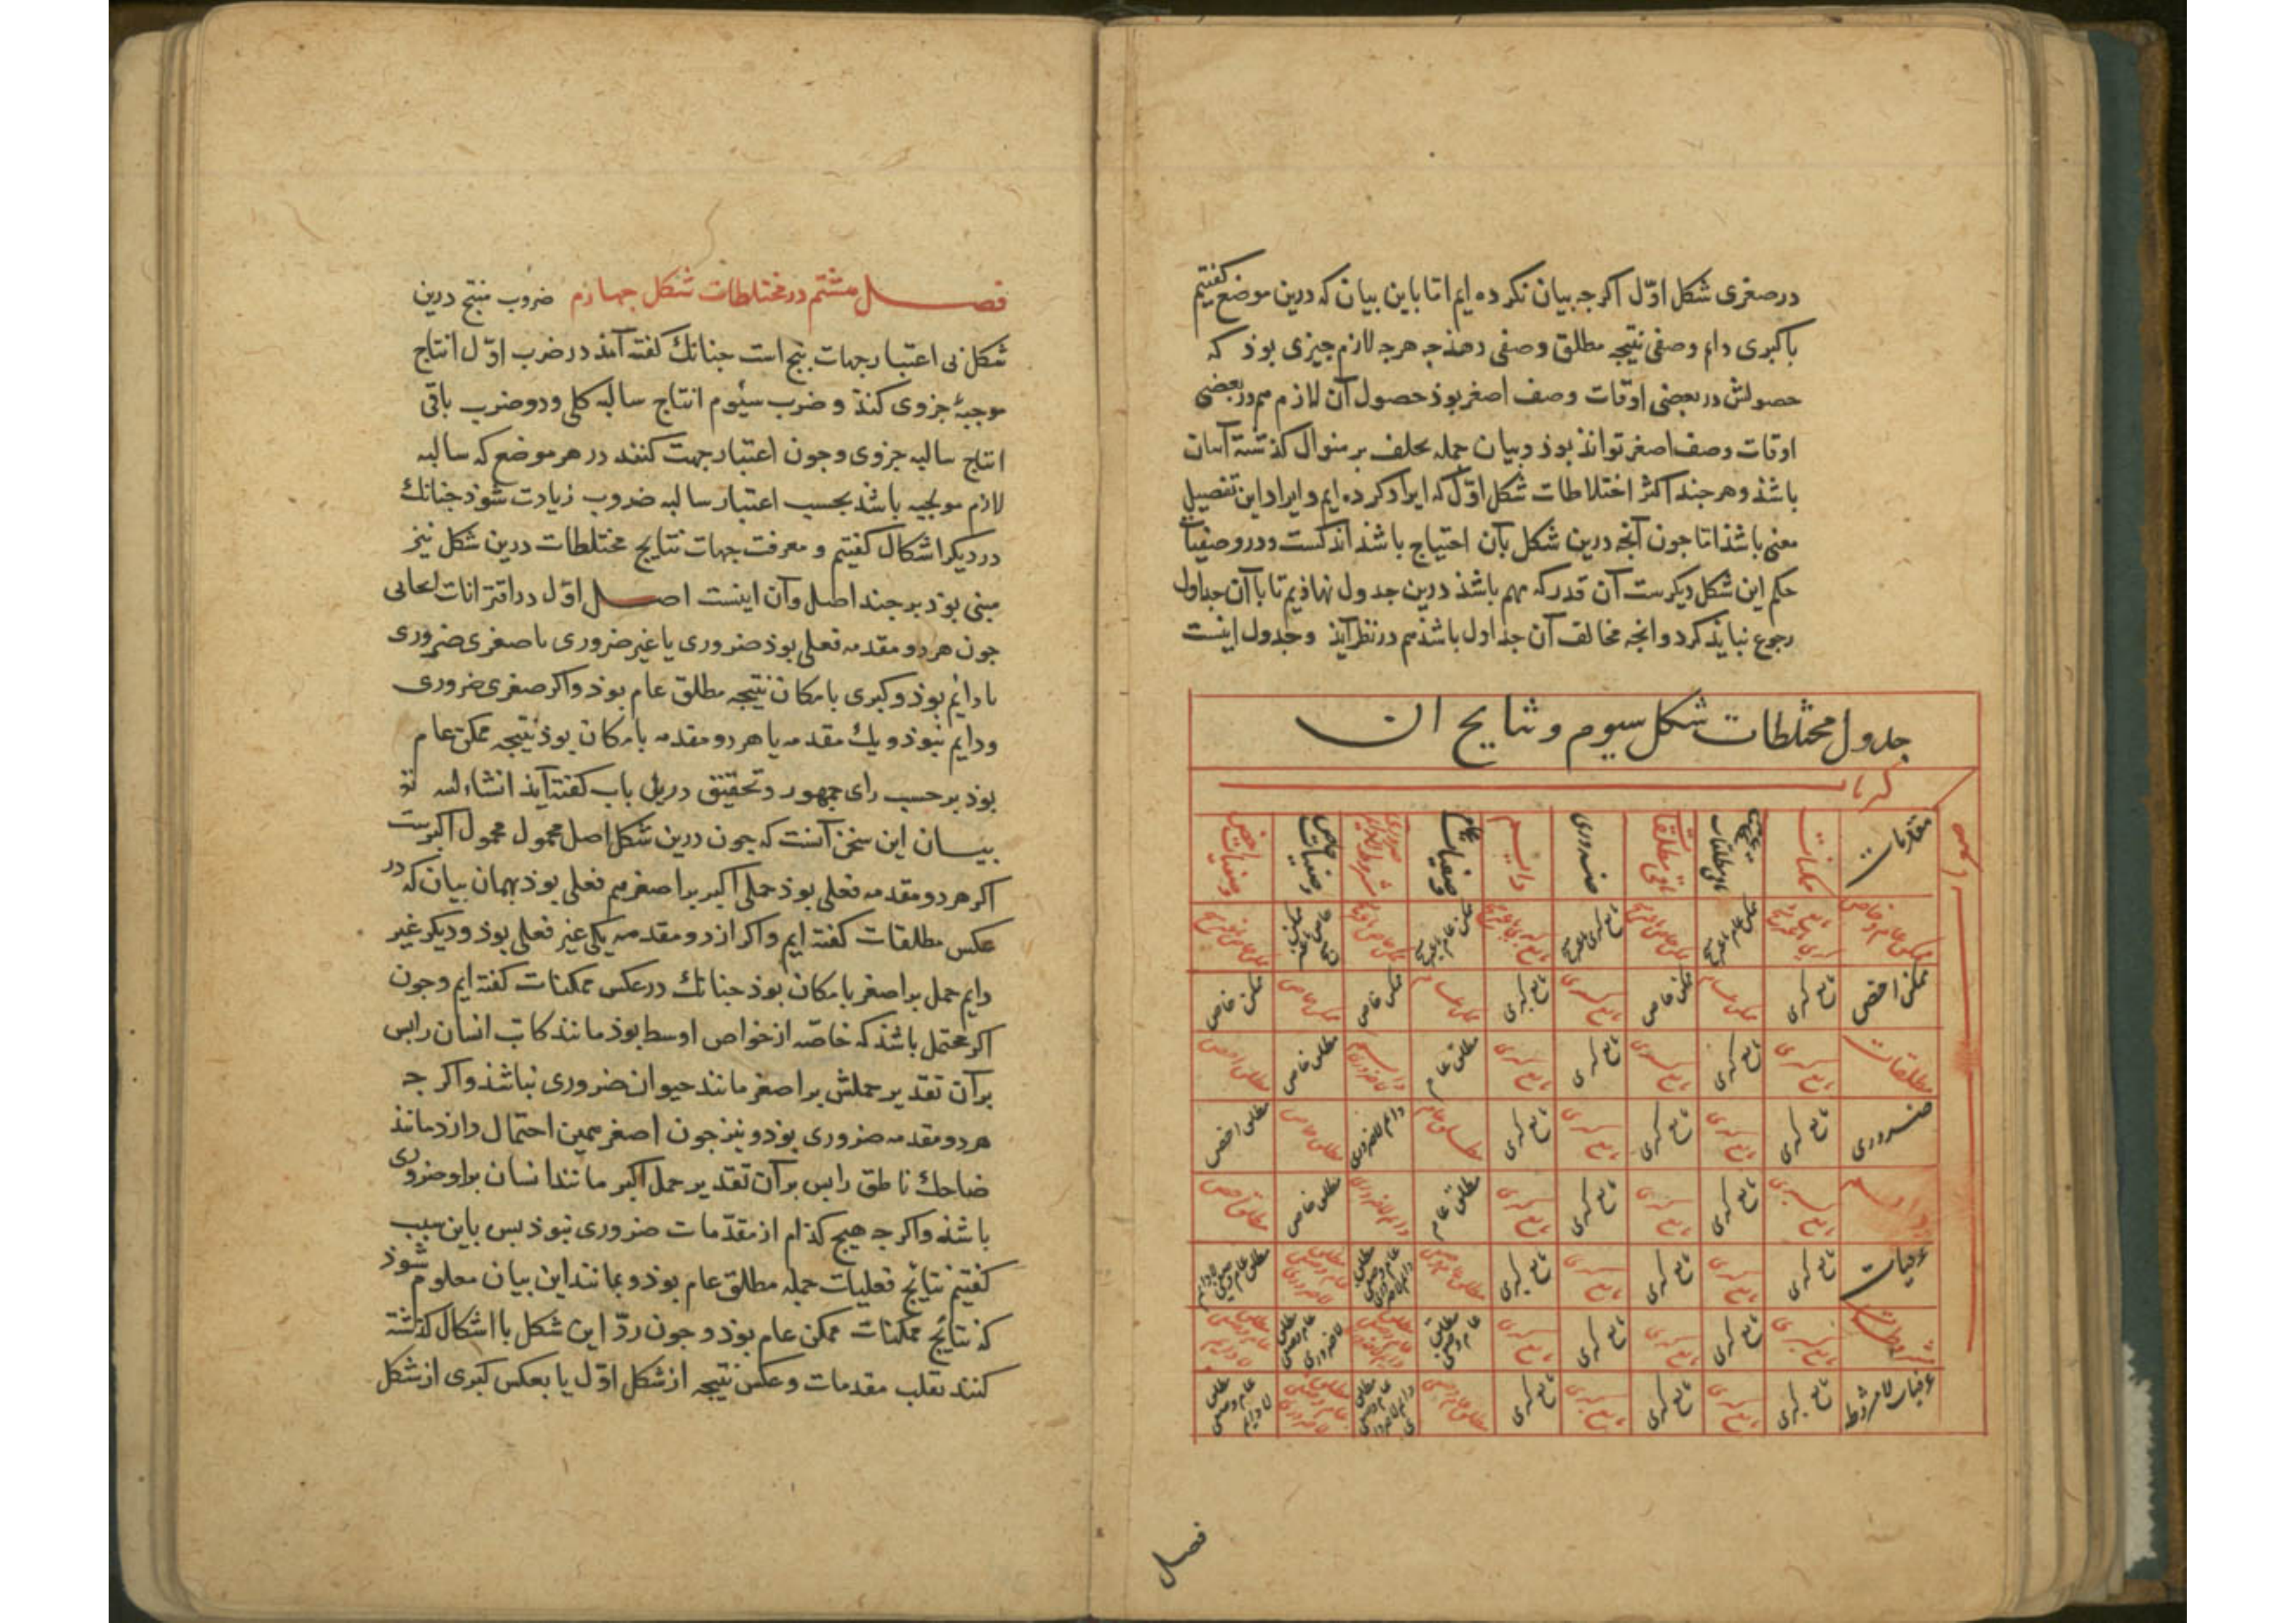 در صغری شکل اوّل اکرجه بیان نکرده ایم اما باین بیان که درین موضع کفتیم
با کبری دایم وصفی نتیجه مطلق وصفی دهذ جه هرجه لازم جیزی بوذ که
حصولش در بعضی اوقات وصف اصغر بوذ حصول آن لازم هم در بعضی
اوقات وصف اصغر تواند بوذ و بیان جمله بخلف بر منوال کذشته آسان
باشذ و هرجند اکثر اختلاطات شکل اوّل که ایراد کرده ایم و ایراد این تفصیل
معنی باشذ اما جون آنجه درین شکل بآن احتیاج باشذ اندکست و در وصفیات
حکم این شکل دیکرست آن قدر که مهم باشذ درین جدول نهاذیم تا با آن جداول
رجوع نبایذ کرد و انجه مخالف آن جداول باشذ هم در نظر آیذ و جدول اینست
جدول مختلطات شکل سیوم و نتایج ان
کبریات
مقدمات ممکنات باقی مطلقات ضروری دایم وصفیات عام وصفیات خاص
ممکن عام و خاص
ممکن اخص تابع کبری ممکن عام ممکن خاص تابع کبری تابع کبری ممکن عام ممکن خاص ممکن خاص ممکن خاص
مطلقات تابع کبری تابع کبری تابع کبری تابع کبری تابع کبری مطلق عام دایم لاضروری مطلق خاص مطلق اخص
ضروری تابع کبری تابع کبری تابع کبری تابع کبری تابع کبری مطلق عام دایم لاضروری مطلق خاص مطلق اخص
دایم تابع کبری تابع کبری تابع کبری تابع کبری تابع کبری مطلق عام دایم لاضروری مطلق خاص مطلق اخص
عرفیات تابع کبری تابع کبری تابع کبری تابع کبری تابع کبری مطلق عام وصفی
مشروطات تابع کبری تابع کبری تابع کبری تابع کبری تابع کبری مطلق عام وصفی
عرفیات لامشروطه تابع کبری تابع کبری تابع کبری تابع کبری تابع کبری مطلق عام وصفی
فصل
فصل هشتم در مختلطات شکل جهارم ضروب منتج درین
شکل بی اعتبار جهات بنج است جنانک کفته آمذ در ضرب اوّل انتاج
موجبهٔ جزوی کنذ و ضرب سیوم انتاج سالبه کلی و دو ضرب باقی
انتاج سالبه جزوی و جون اعتبار جهت کنند در هر موضع که سالبه
لازم موجبه باشذ بحسب اعتبار سالبه ضروب زیادت شوذ جنانک
در دیکر اشکال کفتیم و معرفت جهات نتایج مختلطات درین شکل نیز
مبنی بوذ بر جند اصل و آن اینست اصل اوّل در اقترانات
جون هر دو مقدمه فعلی بوذ ضروری یا غیر ضروری یا صغری ضروری
یا دایم بوذ و کبری بامکان نتیجه مطلق عام بوذ و اکر صغری ضروری
و دایم نبوذ و یک مقدمه یا هر دو مقدمه بامکان بوذ نتیجه ممکن عام
بوذ بر حسب رای جمهور و تحقیق درین باب کفته آیذ انشاءالله تع
بیان این سخن آنست که جون درین شکل اصل محمول محمول اکبرست
اکر هر دو مقدمه فعلی بوذ حمل اکبر بر اصغر هم فعلی بوذ بهمان بیان که در
عکس مطلقات کفته ایم و اکر از دو مقدمه یکی غیر فعلی بوذ و دیکر غیر
دایم حمل بر اصغر بامکان بوذ جنانک در عکس ممکنات کفته ایم و جون
اکبر محتمل باشذ که خاصه از خواص اوسط بوذ مانند کاتب انسان را بس
بر آن تقدیر حملش بر اصغر مانند حیوان ضروری نباشذ و اکر جه
هر دو مقدمه ضروری بوذ و نیز جون اصغر همین احتمال دارذ مانند
ضاحک ناطق را بس بر آن تقدیر حمل اکبر مانند انسان بر او ضروری
باشذ و اکر جه هیج کذام از مقدمات ضروری نبوذ بس باین سبب
کفتیم نتایج فعلیات جمله مطلق عام بوذ و بمانند این بیان معلوم شوذ
که نتایج ممکنات ممکن عام بوذ و جون ردّ این شکل با اشکال کذشته
کنند بقلب مقدمات و عکس نتیجه از شکل اوّل یا بعکس کبری از شکل